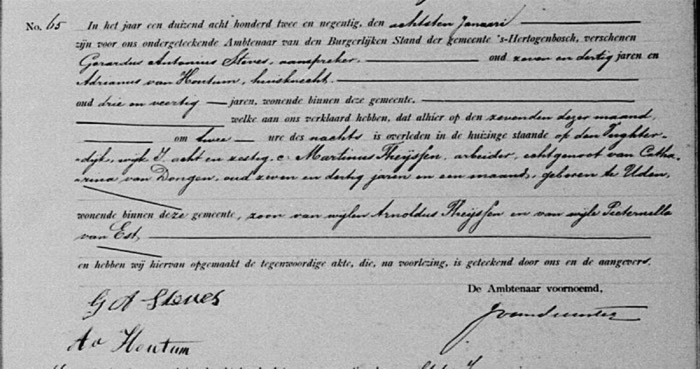 No. 65 In het jaar een duizend acht honderd twee en negentig, den achtsten Januari
zijn voor ons ondergeteekende Ambtenaar van den Burgerlijken Stand der gemeente 's-Hertogenbosch, verschenen
Gerardus Antonius Steves, aanspreker. oud zeven en dertig jaren en
Adrianus van Houtum, huisknecht.
oud drie en veertig jaren, wonende binnen deze gemeente.
welke aan ons verklaard hebben, dat alhier op den zevenden dezer maand,
om twee ure des nachts is overleden in de huizinge staande op den Vughter-
dijk, wijk I, acht en zestig, c. Martinus Theijssen, arbeider, echtgenoot van Catha-
rina van Dongen, oud zeven en dertig jaren en een maand, geboren te Uden,
wonende binnen deze gemeente, zoon van wijlen Arnoldus Theijssen en van wijle Pieternella
van Est,
en hebben wij hiervan opgemaakt de tegenwoordige akte, die, na voorlezing, is geteekend door ons en de aangevers.
De Ambtenaar voornoemd,
G A Steves
A v Houtum